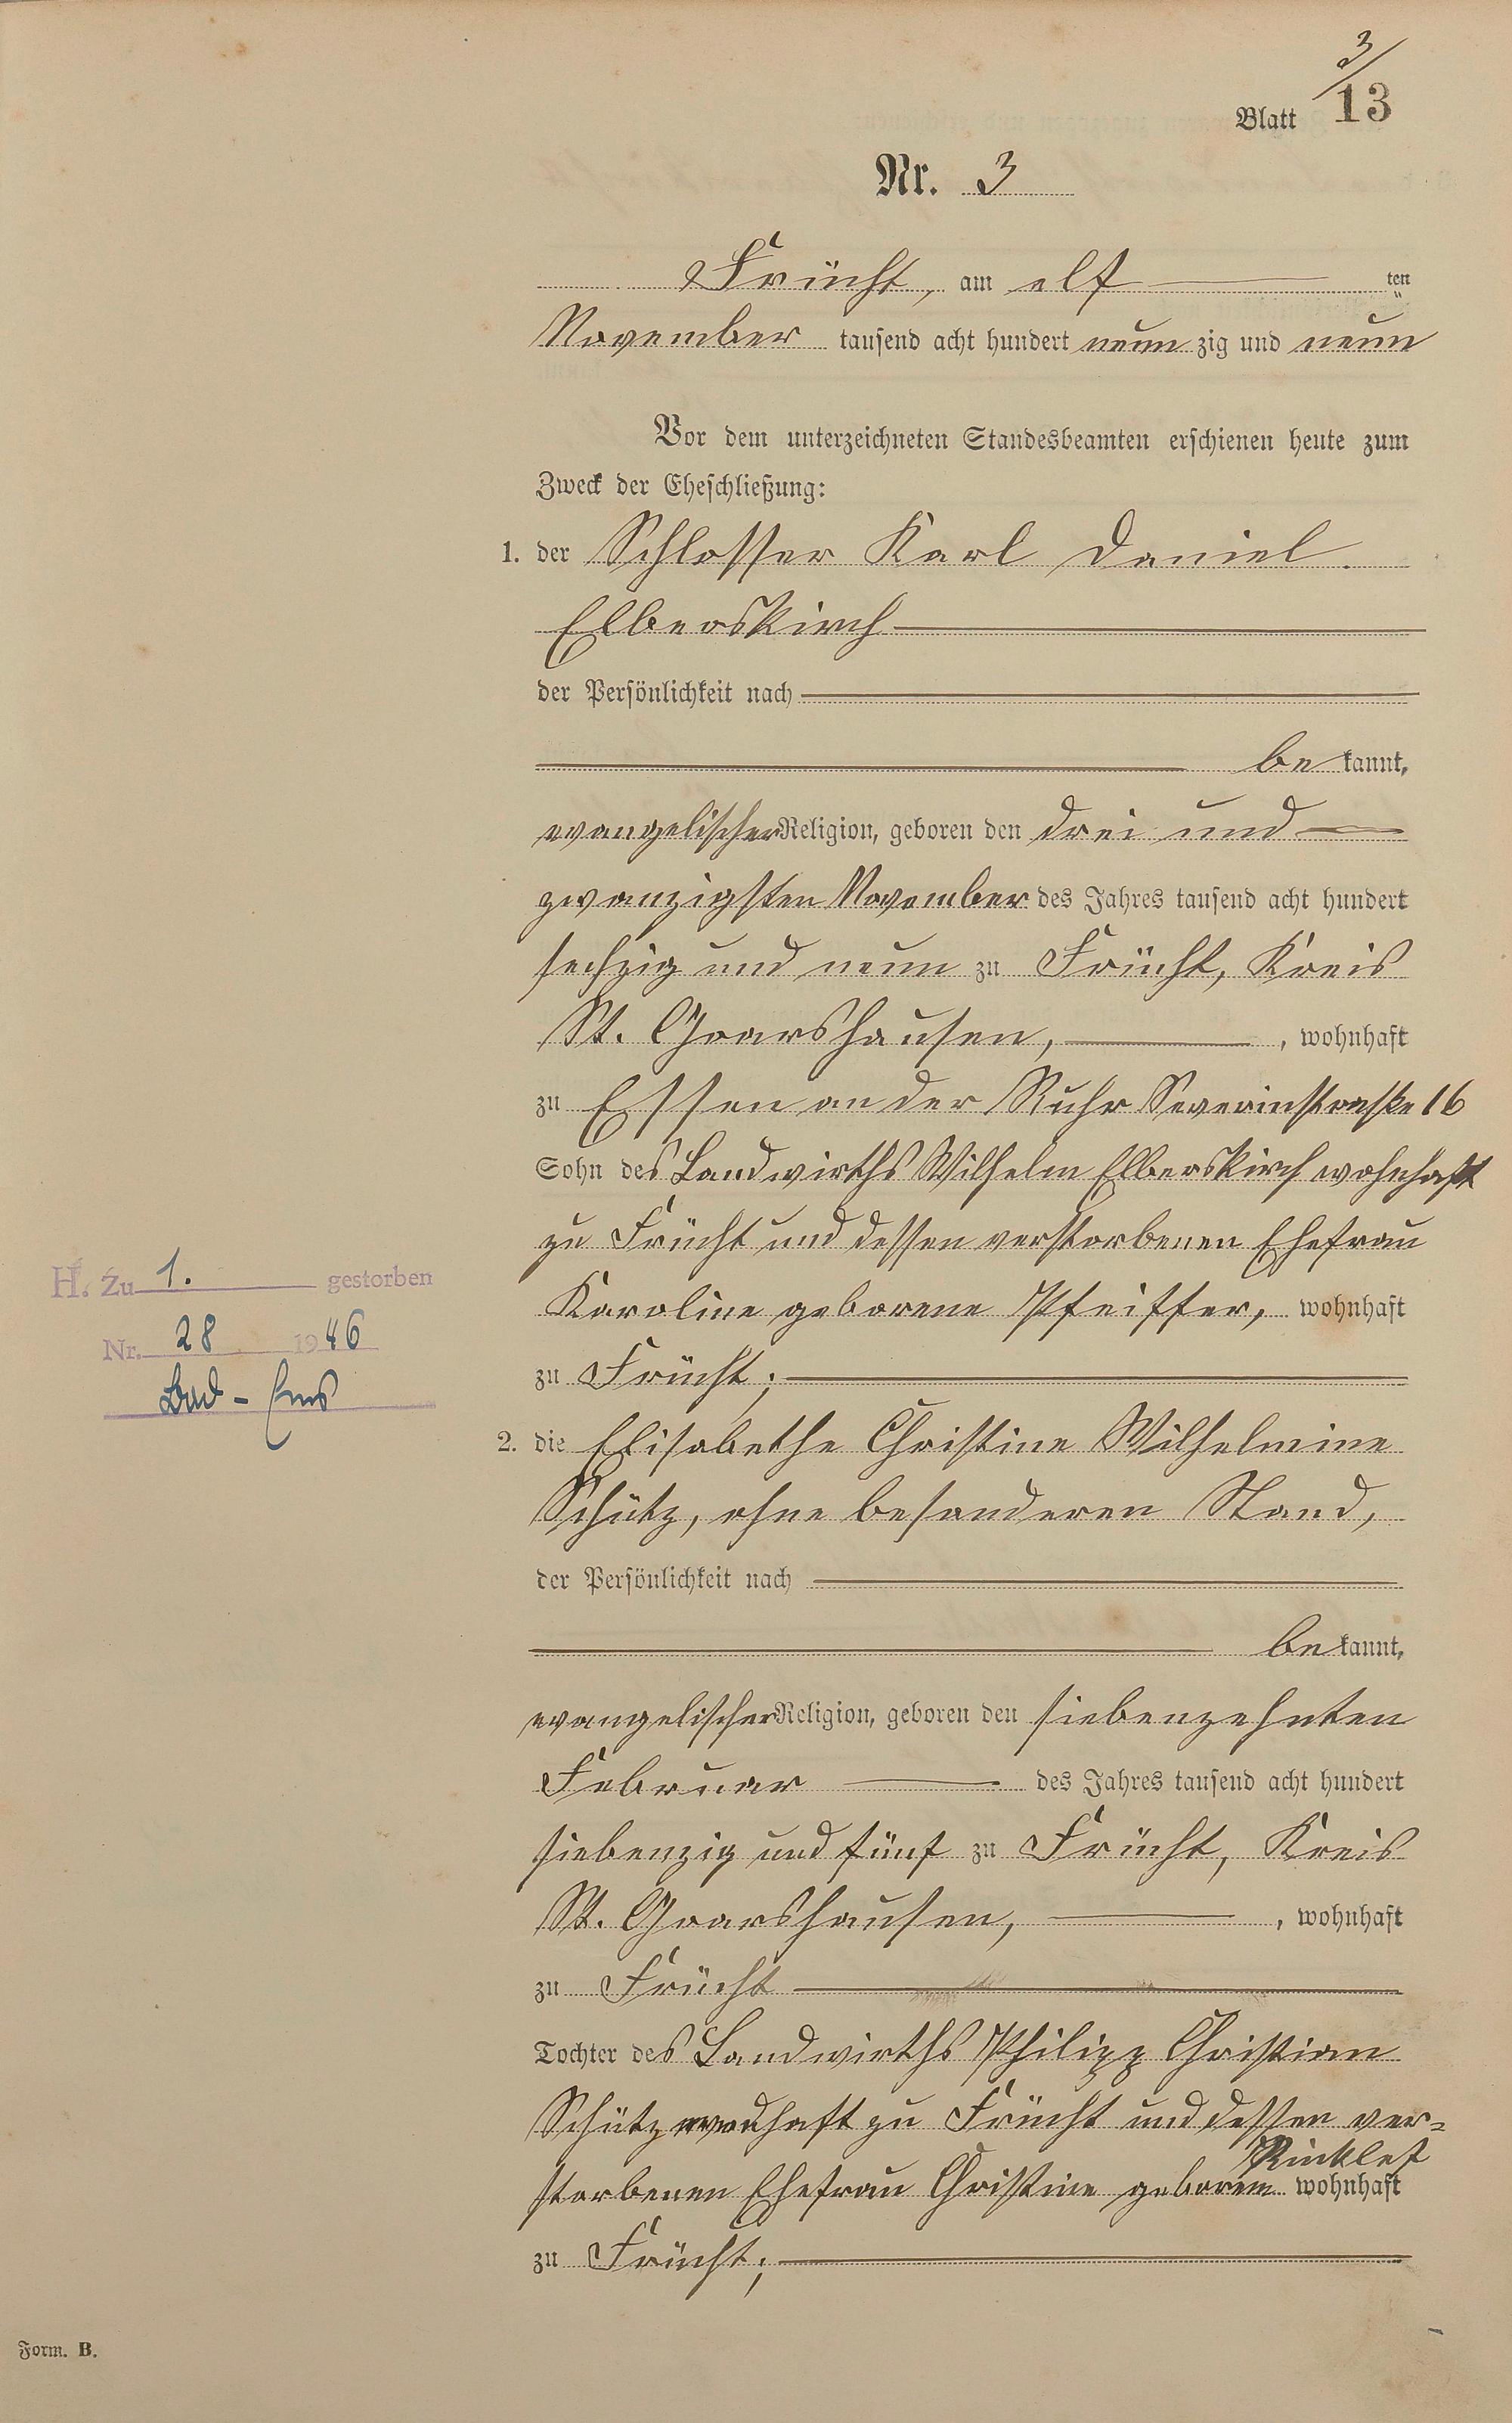 3/
Blatt 13
Nr. 3
Frücht, am elf ten
November tausend acht hundert neun zig und neun
Vor dem unterzeichneten Standesbeamten erschienen heute zum
Zweck der Eheschließung:
1. der Schlosser Karl Daniel
Elberskirch
der Persönlichkeit nach
be kannt,
evangelischer Religion, geboren den drei und
zwanzigsten November des Jahres tausend acht hundert
sechzig und neun zu Frücht, Kreis
St. Goarshausen, , wohnhaft
zu Essen an der Ruhr Severinstraße 16
Sohn des Landwirths Wilhelm Elberskirch wohnhaft
zu Frücht und dessen verstorbenen Ehefrau
H. Zu 1. gestorben
Karoline geborene Pfeiffer, wohnhaft
Nr. 28 1946
zu Frücht;
Bad-Ems
2. die Elisabethe Christine Wilhelmine
Schütz, ohne besonderen Stand,
der Persönlichkeit nach
be kannt,
evangelischer Religion, geboren den siebenzehnten
Februar des Jahres tausend acht hundert
siebenzig und fünf zu Frücht, Kreis
St. Goarshausen, , wohnhaft
zu Frücht
Tochter des Landwirths Philipp Christian
Schütz wonhaft zu Frücht und dessen ver=
storbenen Ehefrau Christine geborene Rinklef wohnhaft
zu Frücht;
Form. B.